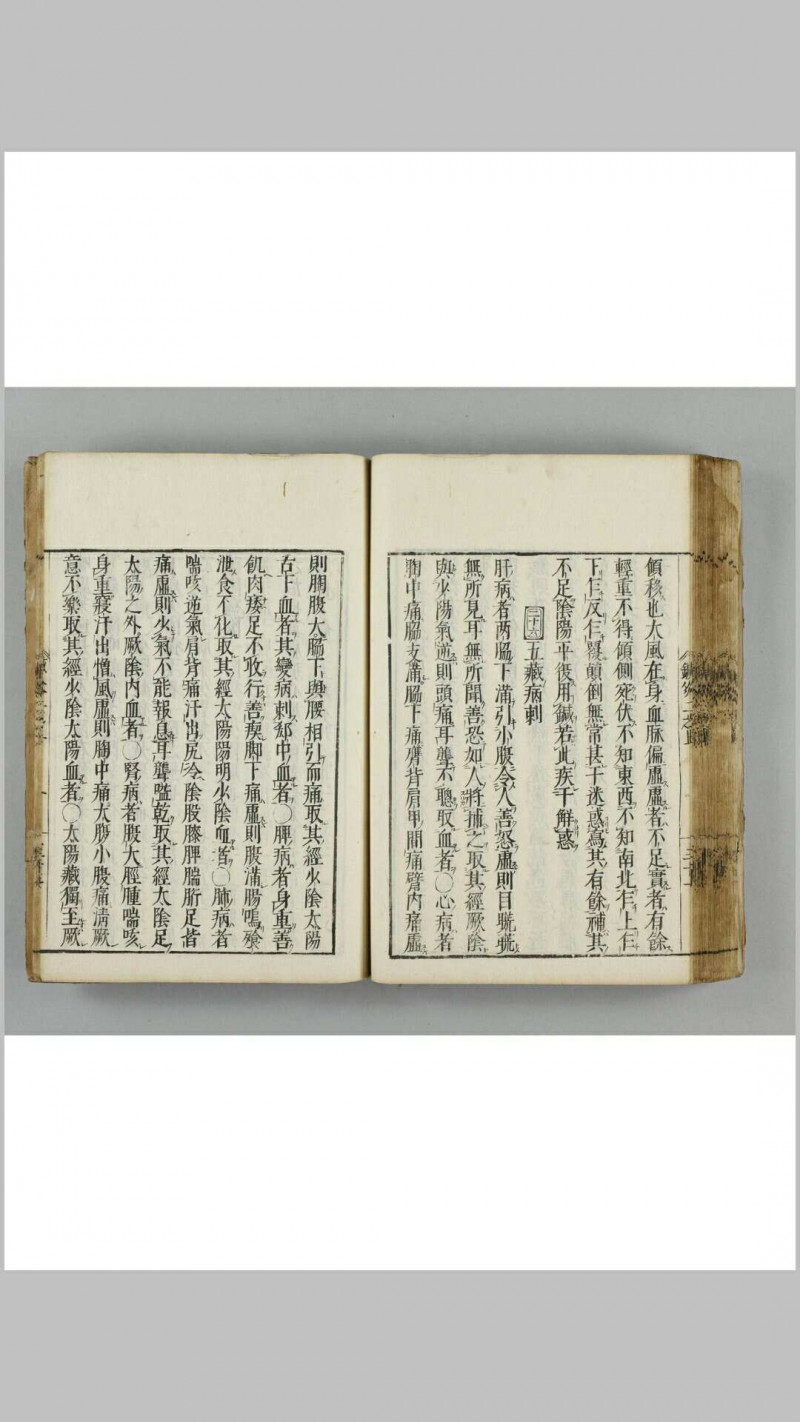 傾移也大風在身血脉偏虛虛者不足實者有餘
輕重不得傾側宛伏不知東西不知南北乍上乍
下乍反乍覆顛倒無常甚于迷惑寫其有餘補其
不足陰陽平復用鍼若此疾于解惑
二十六 五藏病刺
肝病者两脇下滿引小腹令人善怒虛則目䀮䀮
無所見耳無所聞善恐如人將捕之取其經厥陰
與少陽氣逆則頭痛耳聾不聰取血者〇心病者
胸中痛脇支滿脇下痛膺背肩甲間痛臂內痛虛
則胸腹大脇下與腰相引而痛取其經少陰太陽
舌下血者其變病刺郄中血者〇脾病者身重善
飢肉痿足不收行善瘈脚下痛虛則腹滿腸鳴飱
泄食不化取其經太陽陽明少陰血者〇肺病者
喘咳逆氣肩背痛汗出尻冷陰股膝脾腨胻足皆
痛虛則少氣不能報息耳聾嗌乾取其經太陰足
太陽之外厥陰內血者〇腎病者腹大脛腫喘咳
身重寢汗出憎風虛則胸中痛大腹小腹痛清厥
意不樂取其經少陰太陽血者〇太陽藏獨至厥